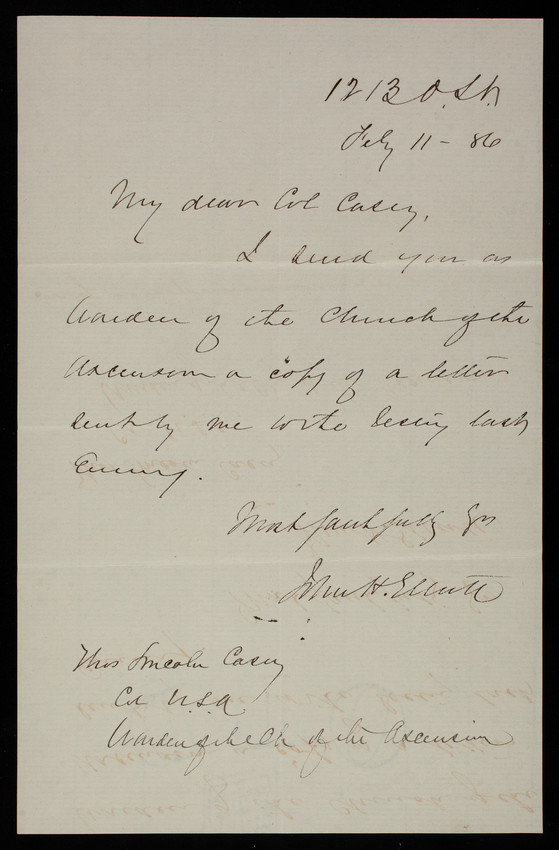 1213 O. St.
Feby 11 - 86
My dear Col Casey,
I send you as
Warden of the Church of the
Ascension a copy of a letter
sent by me to the Vestry last
Evening.
Most faithfully Yrs
John H. Elliott
Thos Lincoln Casey
Col U.S.A.
Warden of the Ch of the Ascension